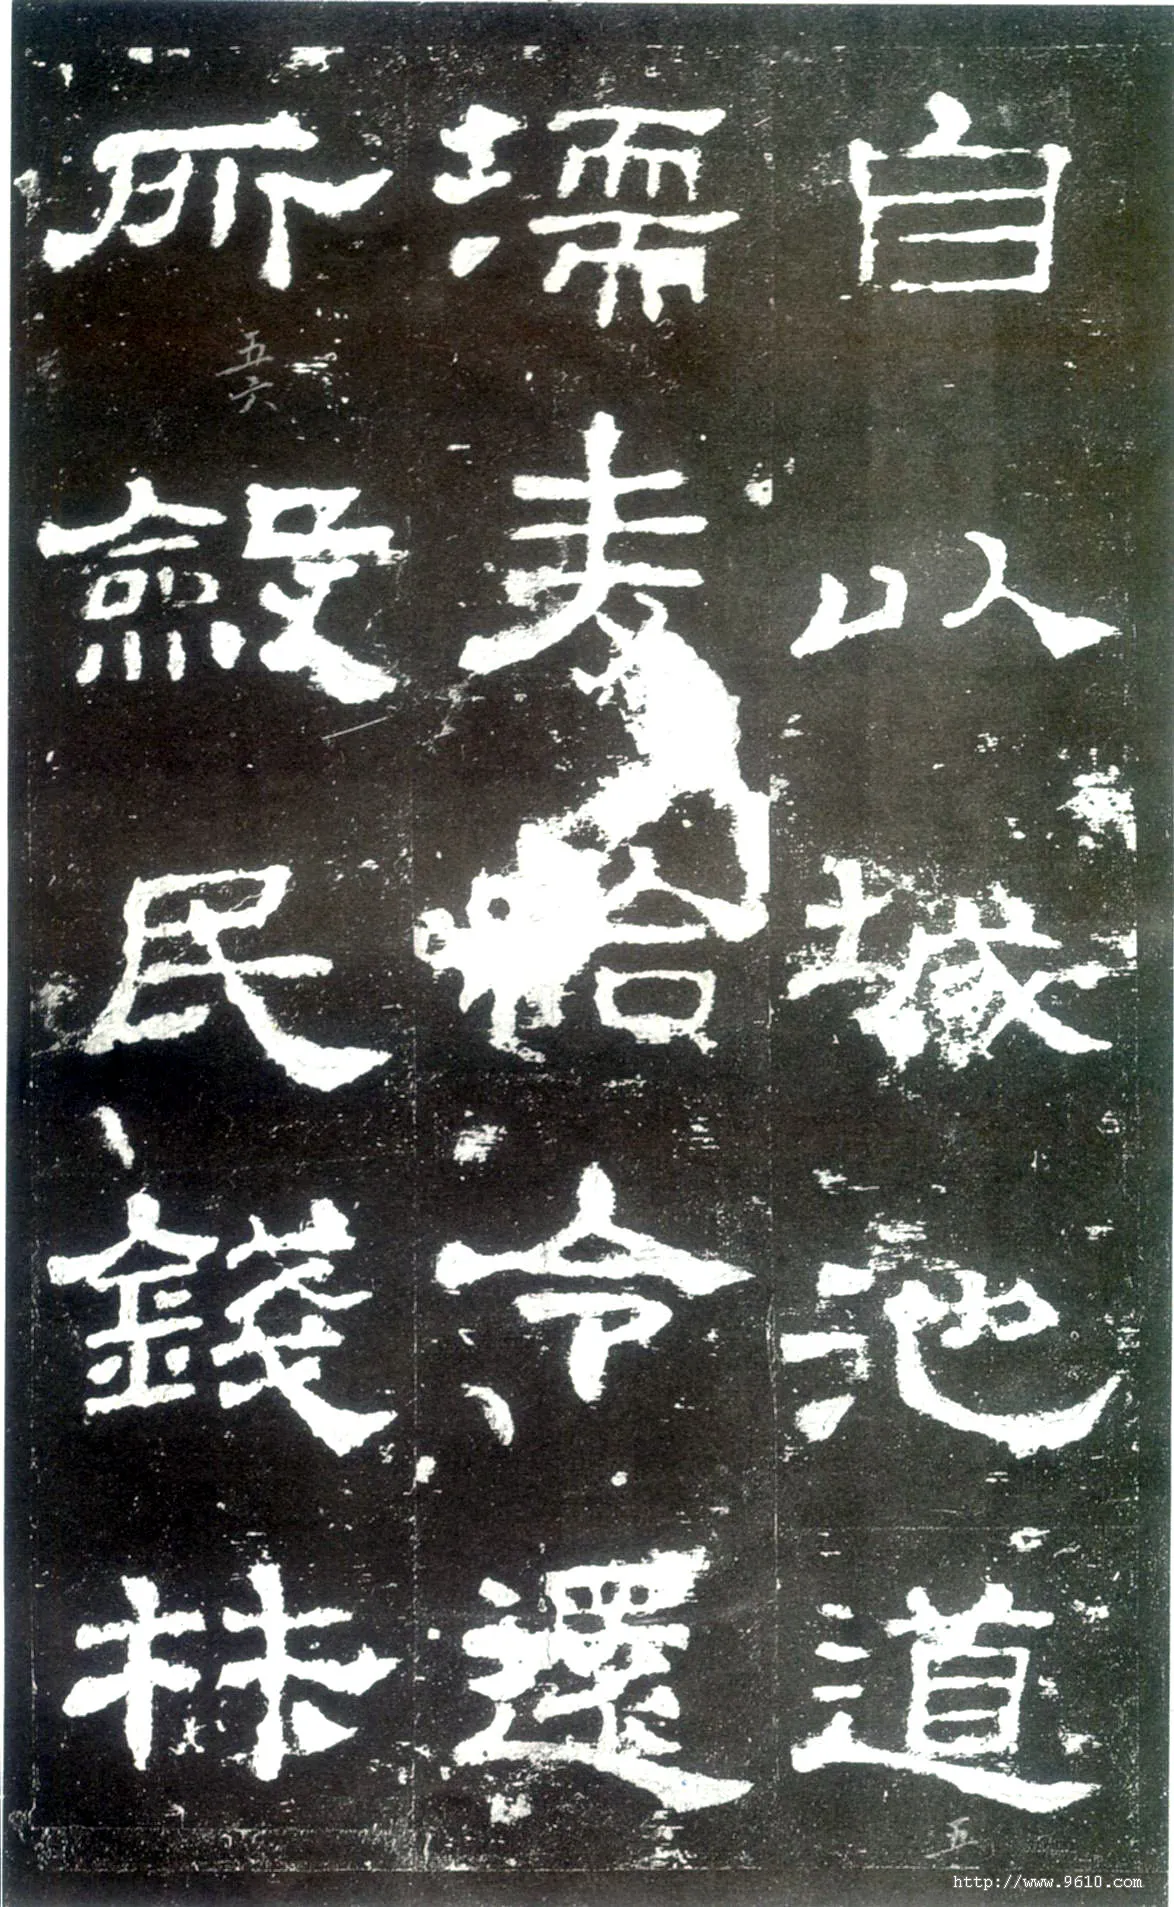 自以城池道
濡麥給令還
所斂民錢材
五六
五
http://www.9610.com